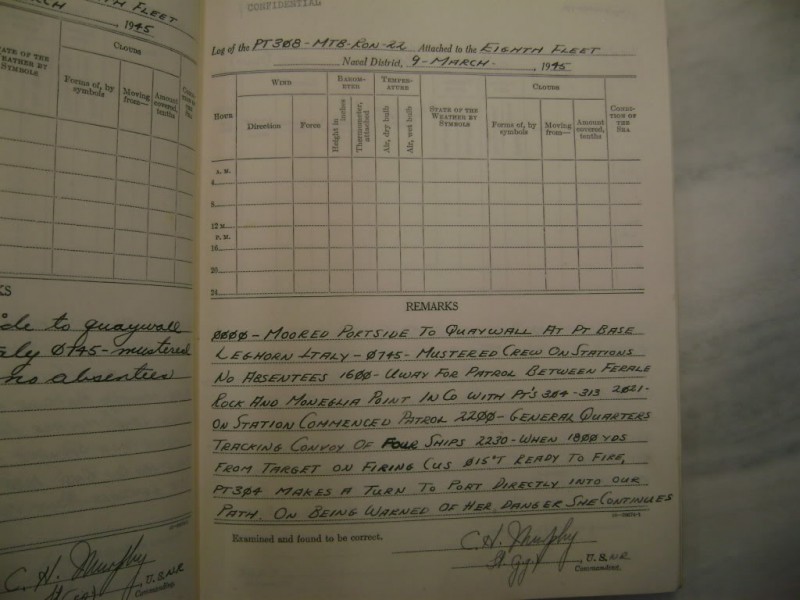 FLEET
MARCH , 1945
STATE OF THE
WEATHER BY
SYMBOLS
CLOUDS
Forms of, by
symbols
Moving
from—
Amount
covered,
tenths
KS
side to quaywall
0745-mustered
no absentees
C. H. Murphy
, U.S.NR
Commanding.
CONFIDENTIAL
Log of the PT 308-MTB-RON-22 Attached to the EIGHTH FLEET
Naval District, 9-MARCH- , 1945
HOUR
WIND
Direction
Force
BAROM-
ETER
Height in
inches
Thermometer,
attached
TEMPER-
ATURE
Air, dry bulb
Air, wet bulb
STATE OF THE
WEATHER BY
SYMBOLS
CLOUDS
Forms of, by
symbols
Moving
from—
Amount
covered,
tenths
CONDI-
TION OF
THE
SEA
A. M.
4
8
12 M
P. M.
16
20
24
REMARKS
0000-MOORED PORTSIDE TO QUAYWALL AT PT BASE
LEGHORN ITALY-0745-MUSTERED CREW ON STATIONS
NO ABSENTEES 1600-UWAY FOR PATROL BETWEEN FERALE
ROCK AND MONEGLIA POINT IN CO WITH PT'S 304-313 2021-
ON STATION COMMENCED PATROL 2200-GENERAL QUARTERS
TRACKING CONVOY OF FOUR SHIPS 2230-WHEN 1800 YDS
FROM TARGET ON FIRING CUS 015°T READY TO FIRE,
PT 304 MAKES A TURN TO PORT DIRECTLY INTO OUR
PATH. ON BEING WARNED OF HER DANGER SHE CONTINUES
Examined and found to be correct.
C H Murphy
Lt. jg , U. S. NR
Commanding.